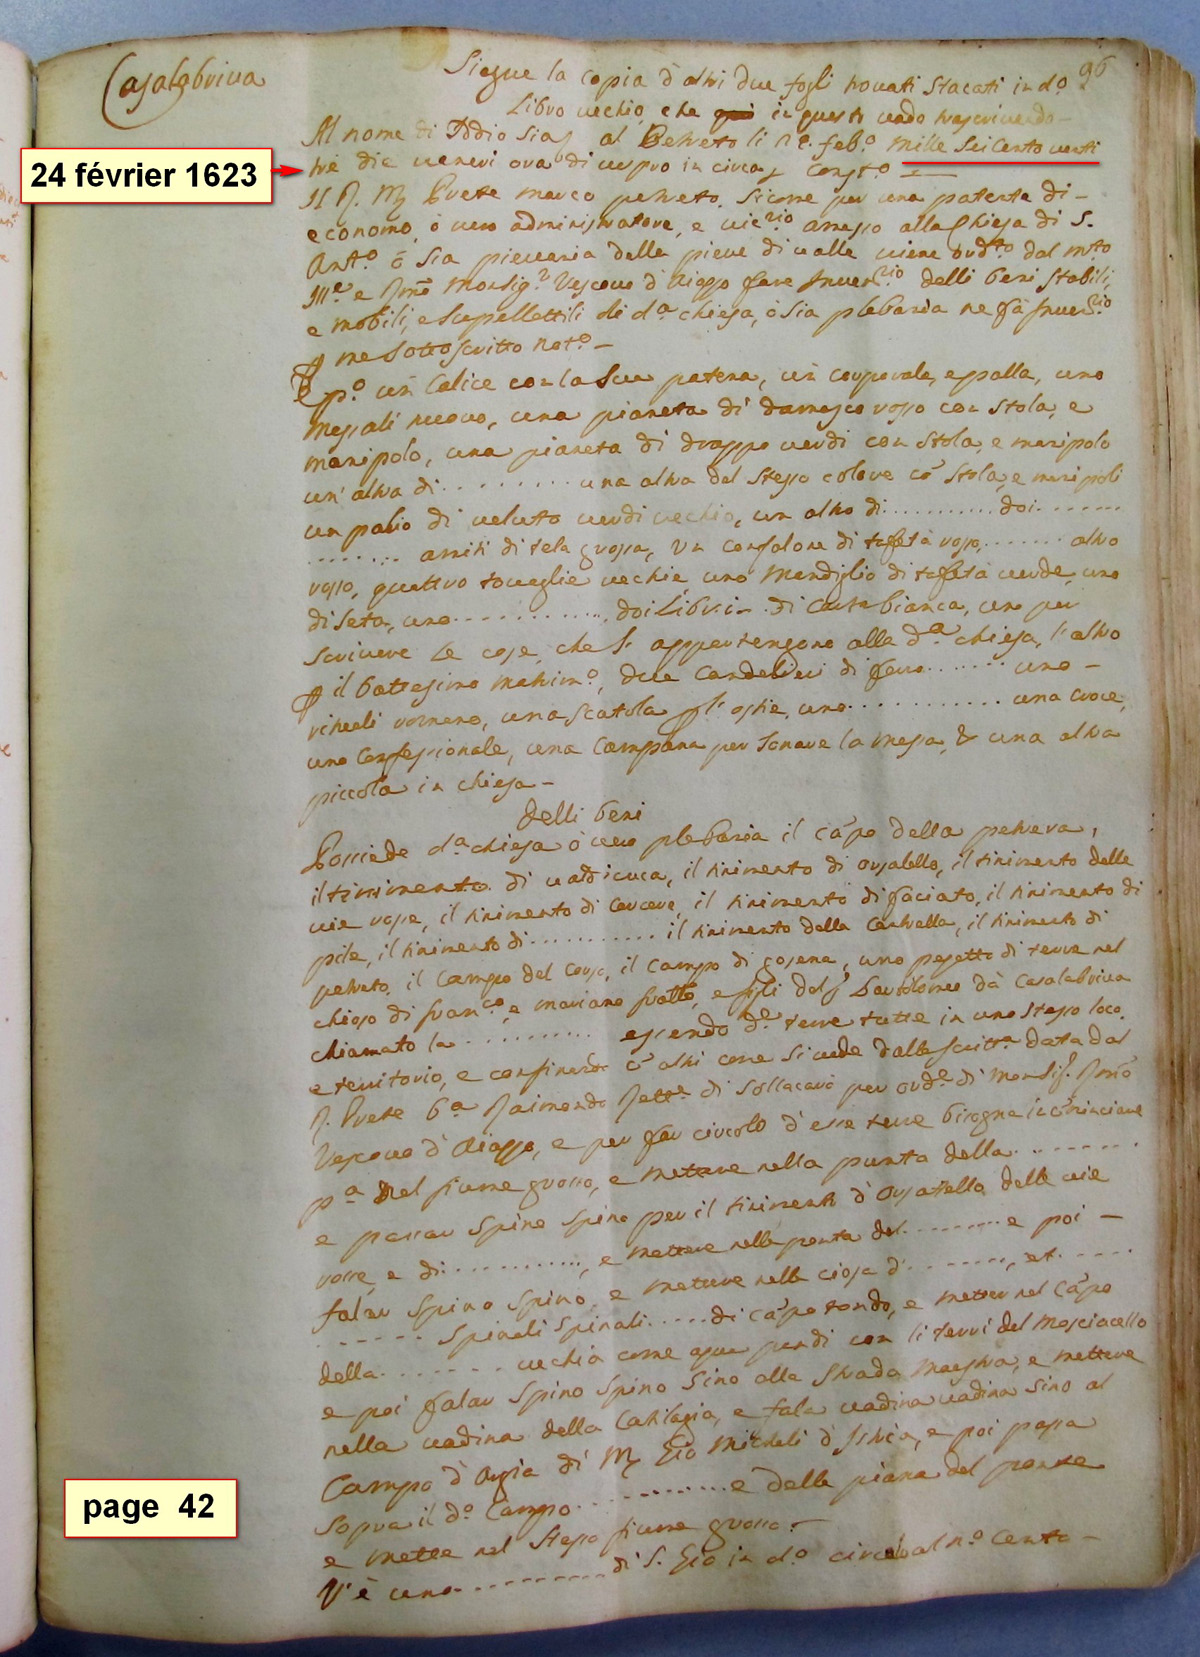 Casalabriva
96
Siegue la copia d'altri due fogli trovati stacati in do
Libro vechio, che in questo vado trascrivendo
Al nome di Iddio sia al Petreto li feb.o mille sei Cento venti
24 février 1623
tre die veneri ora di vespro in circa
Il R. M. Prete marco petreto, sicome per una patente di
economo, ò vero administratore, e vic.rio annesso alla Chiesa di S.
Ant.o ò sia pievania della pieve di valle viene ord.to dal m.to
Ill.e e R.mo Monsig.r Vescovo d'Aiazzo fare Inven.rio delli beni stabili,
e mobili, e supellettili di d.a chiesa, ò sia plebania ne fà Inven.rio
me sottoscritto not.o
E p.o un Calice con la sua patena, un corporale, e palla, uno
messali nuovo, una pianeta di damasco rosso con stola, e
manipolo, una pianeta di drappo verdi con stola, e manipolo
un'altra di .......... una altra del stesso colore cõ stola, e manipoli
un palio di veluto verdi vechio, un altro di ........... doi .......
........ amiti di tela grossa, un confalone di taffetà rosso, ....... altro
rosso, quattro tovaglie vechie, uno Mandiglio di taffetà verde, uno
di seta, uno ............, doi Libri di Carta bianca, uno per
scrivere le cose, che si appartengono alla d.a chiesa, l'altro
il battesimo matrim.o, due Candelieri di ferro ....... uno
rituali romano, una scatola l'ostie, uno ............ una croce,
uno Confessionale, una Campana per sonare la messa, & una altra
piccola in chiesa
delli beni
Possiede d.a chiesa ò vero plebania il cãpo della petrera,
il tinimento di valdicuca, il tinimento di orsatello, il tinimento delle
vie rosse, il tinimento di il tinimento di faciato, il tinimento di
pile, il tinimento di ............ il tinimento della Centrella, il tinimento di
petreto, il Campo del il Campo di uno pezetto di terre nel
chioso di fran.co, e mariano fratto, e figli del Bartolomeo dà Casalabriva
chiamato la ............ essendo d.e terre tutte in uno stesso loco,
e territorio, e confinando cõ altri come si vede dalle scritt.e data dal
R. Prete Raimondo di Sollacarò per ord.e di Monsig.r R.mo
Vescovo d'Aiazzo, e per far circolo d'esse terre bisogna incominciare
p.a del fiume grosso, e mettere nella punta della ..........
e passar spino spino per il tinimento d'Orsatello delle vie
rosse, e di ............, e mettere nella ponta del ......... e poi
falar spino spino, e mettere nella d' ........, et .....
...... spinali spinali ..... di cãpo tondo, e metter nel Cãpo
della ........ vechia come aqua pendi con li terri del Mosciacello
e poi falar spino spino sino alla strada Maestra, e mettere
nella vadina della e fala vadina vadina sino al
Campo d' di M. Gio Micheli d'Istria, e poi passa
sopra il d.o Campo ............. e della piana del ponte
e mette nel stesso fiume grosso.
page 42
V'è uno ............ di S. Gio in d.o circolo al n.o Cento